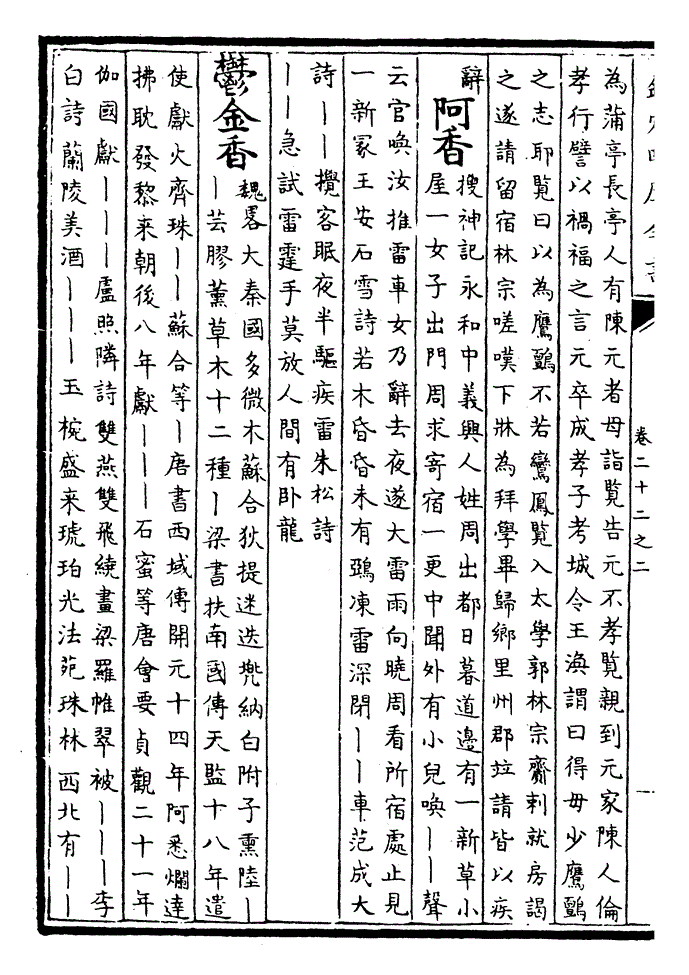 卷二十二之二
一
為蒲亭長亭人有陳元者母詣覽告元不孝覽親到元家陳人倫
孝行譬以禍福之言元卒成孝子考城令王渙謂曰得毋少鷹鸇
之志耶覽曰以為鷹鸇不若鸞鳳覽入太學郭林宗齎刺就房謁
之遂請留宿林宗嗟嘆下牀為拜學畢歸鄉里州郡竝請皆以疾
辭
阿香
搜神記永和中義興人姓周出都日暮道邊有一新草小
屋一女子出門周求寄宿一更中聞外有小兒喚丨丨聲
云官喚汝推雷車女乃辭去夜遂大雷雨向曉周看所宿處止見
一新冢王安石雪詩若木昏昏未有鵶凍雷深閉丨丨車范成大
詩丨丨攪客眠夜半驅疾雷朱松詩
丨丨急試雷霆手莫放人間有卧龍
鬱金香
魏畧大秦國多微木蘇合狄提迷迭兠納白附子熏陸丨
丨芸膠薰草木十二種丨梁書扶南國傳天監十八年遣
使獻火齊珠丨丨蘇合等丨唐書西域傳開元十四年阿悉爛達
拂耽發黎来朝後八年獻丨丨丨石蜜等唐會要貞觀二十一年
伽國獻丨丨丨盧照隣詩雙燕雙飛繞畫梁羅帷翠被丨丨丨李
白詩蘭陵美酒丨丨丨玉椀盛来琥珀光法苑珠林西北有丨丨